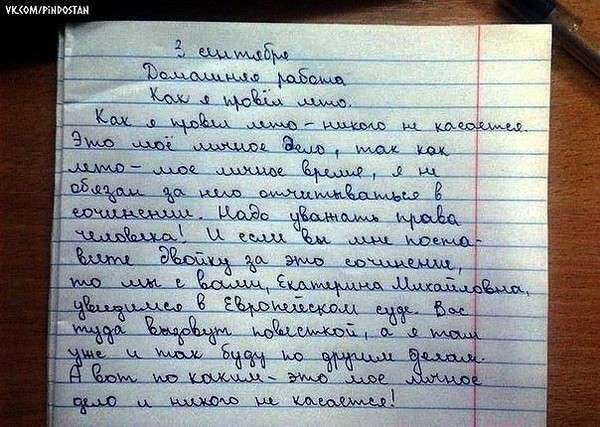 VK.COM/PINDOSTAN
3 сентября
Домашняя работа
Как я провёл лето.
Как я провел лето – никого не касается.
Это моё личное дело, так как
лето – мое личное время, я не
обязан за него отчитываться в
сочинении. Надо уважать права
человека! И если вы мне поста-
вите двойку за это сочинение,
то мы с вами, Екатерина Михайловна,
увидимся в Европейском суде. Вас
туда вызовут повесткой, а я там
уже и так буду по другим делам.
А вот по каким – это мое личное
дело и никого не касается!